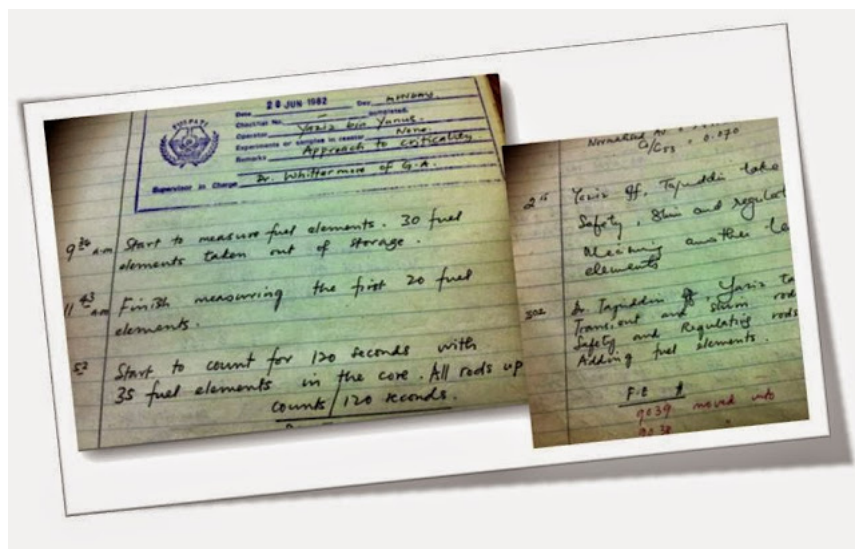 PUSPATI
Date 28 JUN 1982 Day MONDAY
Checklist No. — completed.
Operator Yaziz bin Yunus.
Experiments or samples in reactor None.
Remarks Approach to criticality
Supervisor in Charge Dr. Whittermore of G.A.
9 am Start to measure fuel elements. 30 fuel
elements taken out of storage.
11 43 am Finish measuring the first 20 fuel
elements.
52 Start to count for 120 seconds with
35 fuel elements in the core. All rods up
counts/120 seconds.
Normalised Av
C/C53 = 0.070
2 15 Yaziz off, Tajuddin take
Safety, Shim and regulat
another
elements
302 Dr. Tajuddin off, Yaziz ta
Trans. out and shim rod
Safety and Regulating rods
Adding fuel elements.
F.E #
9039 moved into
9038